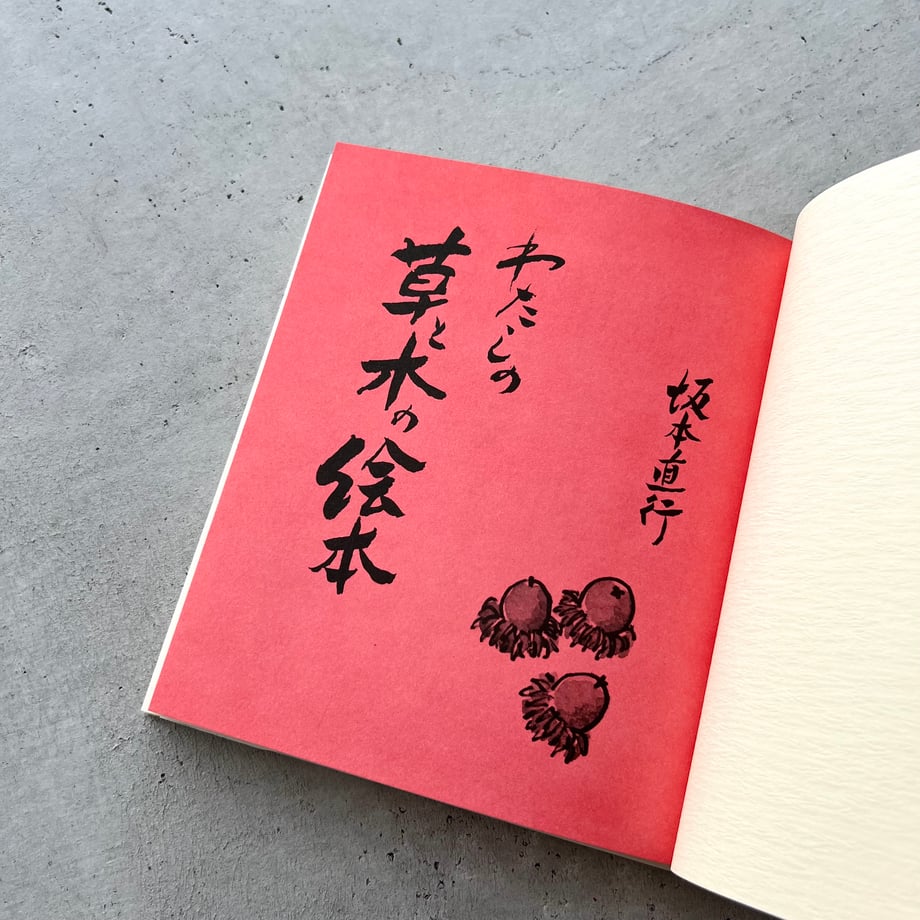 坂本直行
わたしの
草と木の
絵本